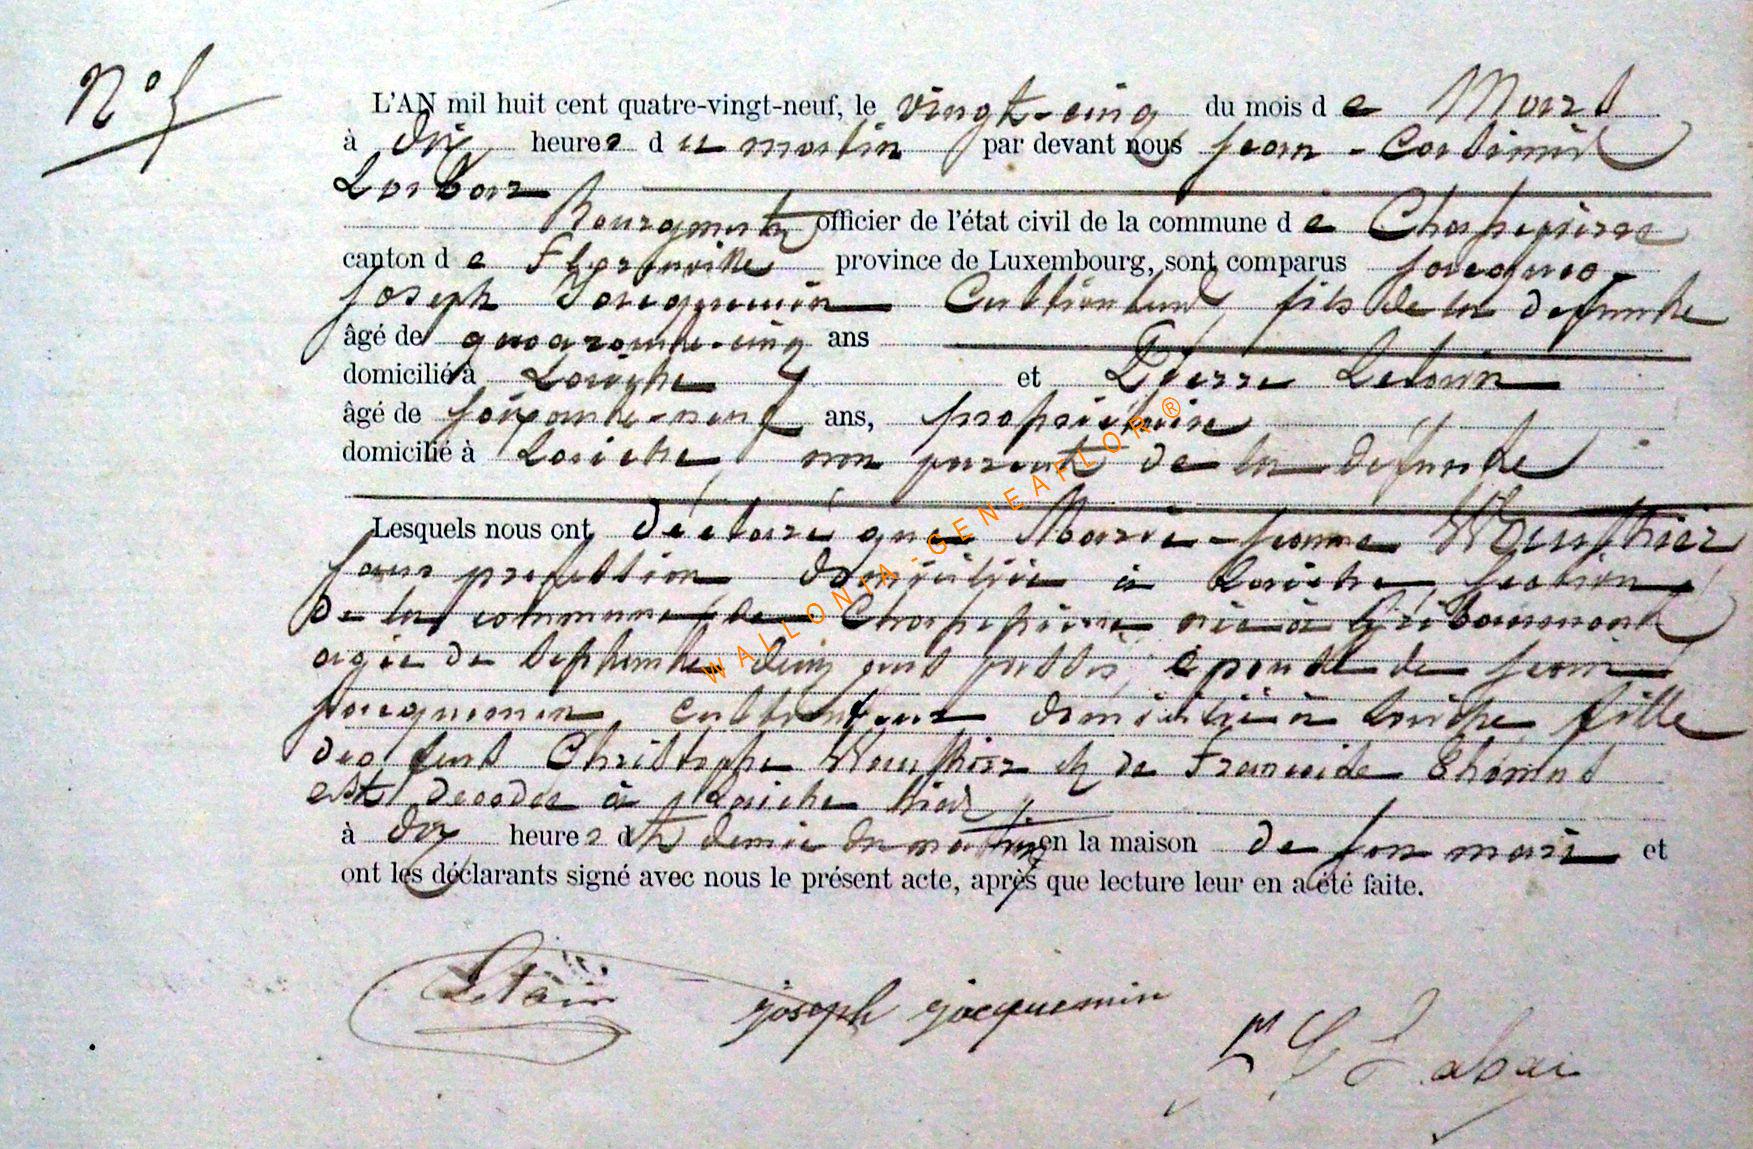 N° 5
L'AN mil huit cent quatre-vingt-neuf, le vingt-cinq du mois de Mars
à dix heures du matin par devant nous Jean-Casimir
Labar
Bourgmestre officier de l'état civil de la commune de Chassepierre
canton de Florenville province de Luxembourg, sont comparus Jacques-
Joseph Jacquemin Cultivateur, fils de la défunte
âgé de quarante-cinq ans
domicilié à Laiche et Pierre Letain
âgé de soixante-neuf ans, propriétaire
domicilié à Laiche, non parent de la défunte
Lesquels nous ont déclaré que Marie-Jeanne Wauthier
sans profession domiciliée à Laiche, section
de la commune de Chassepierre née à Gribaumont
agée de septante deux ans passés, épouse de Jean
Jacquemin, cultivateur domicilié à Laiche, fille
des feus Christophe Wauthier et de Francoise Thomas
est décédée à Laiche hier
à dix heures et demie du matin, en la maison de son mari et
ont les déclarants signé avec nous le présent acte, après que lecture leur en a été faite.
Letain joseph jacquemin
Labar
WALLONIA-GENEAFLOR®